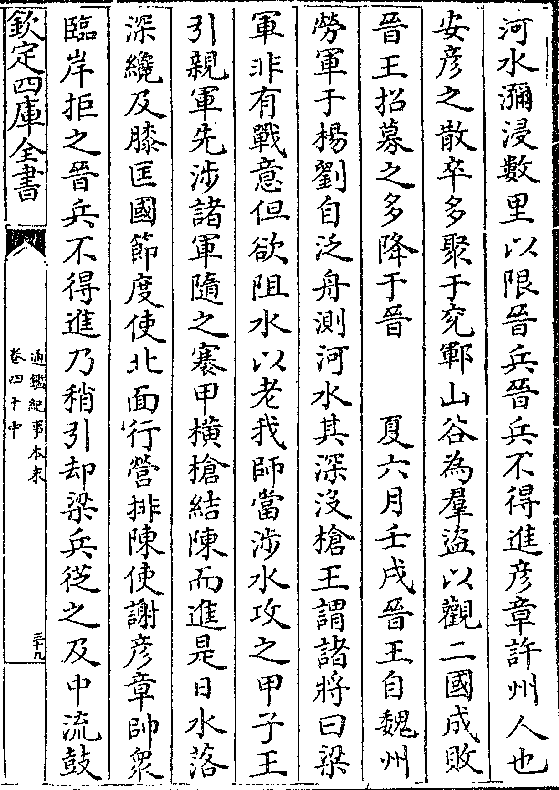 河水瀰浸數里以限晉兵晉兵不得進彦章許州人也
安彦之散卒多聚于兖鄆山谷為羣盗以觀二國成敗
晉王招募之多降于晉　夏六月壬戌晉王自魏州
勞軍于楊劉自泛舟測河水其深沒槍王謂諸將曰梁
軍非有戰意但欲阻水以老我師當涉水攻之甲子王
引親軍先涉諸軍隨之褰甲橫槍結陳而進是日水落
深纔及膝匡國節度使北面行營排陳使謝彦章帥衆
臨岸拒之晉兵不得進乃稍引却梁兵從之及中流鼓
欽定四庫全書
通鑑紀事本末
卷四十中
三十九